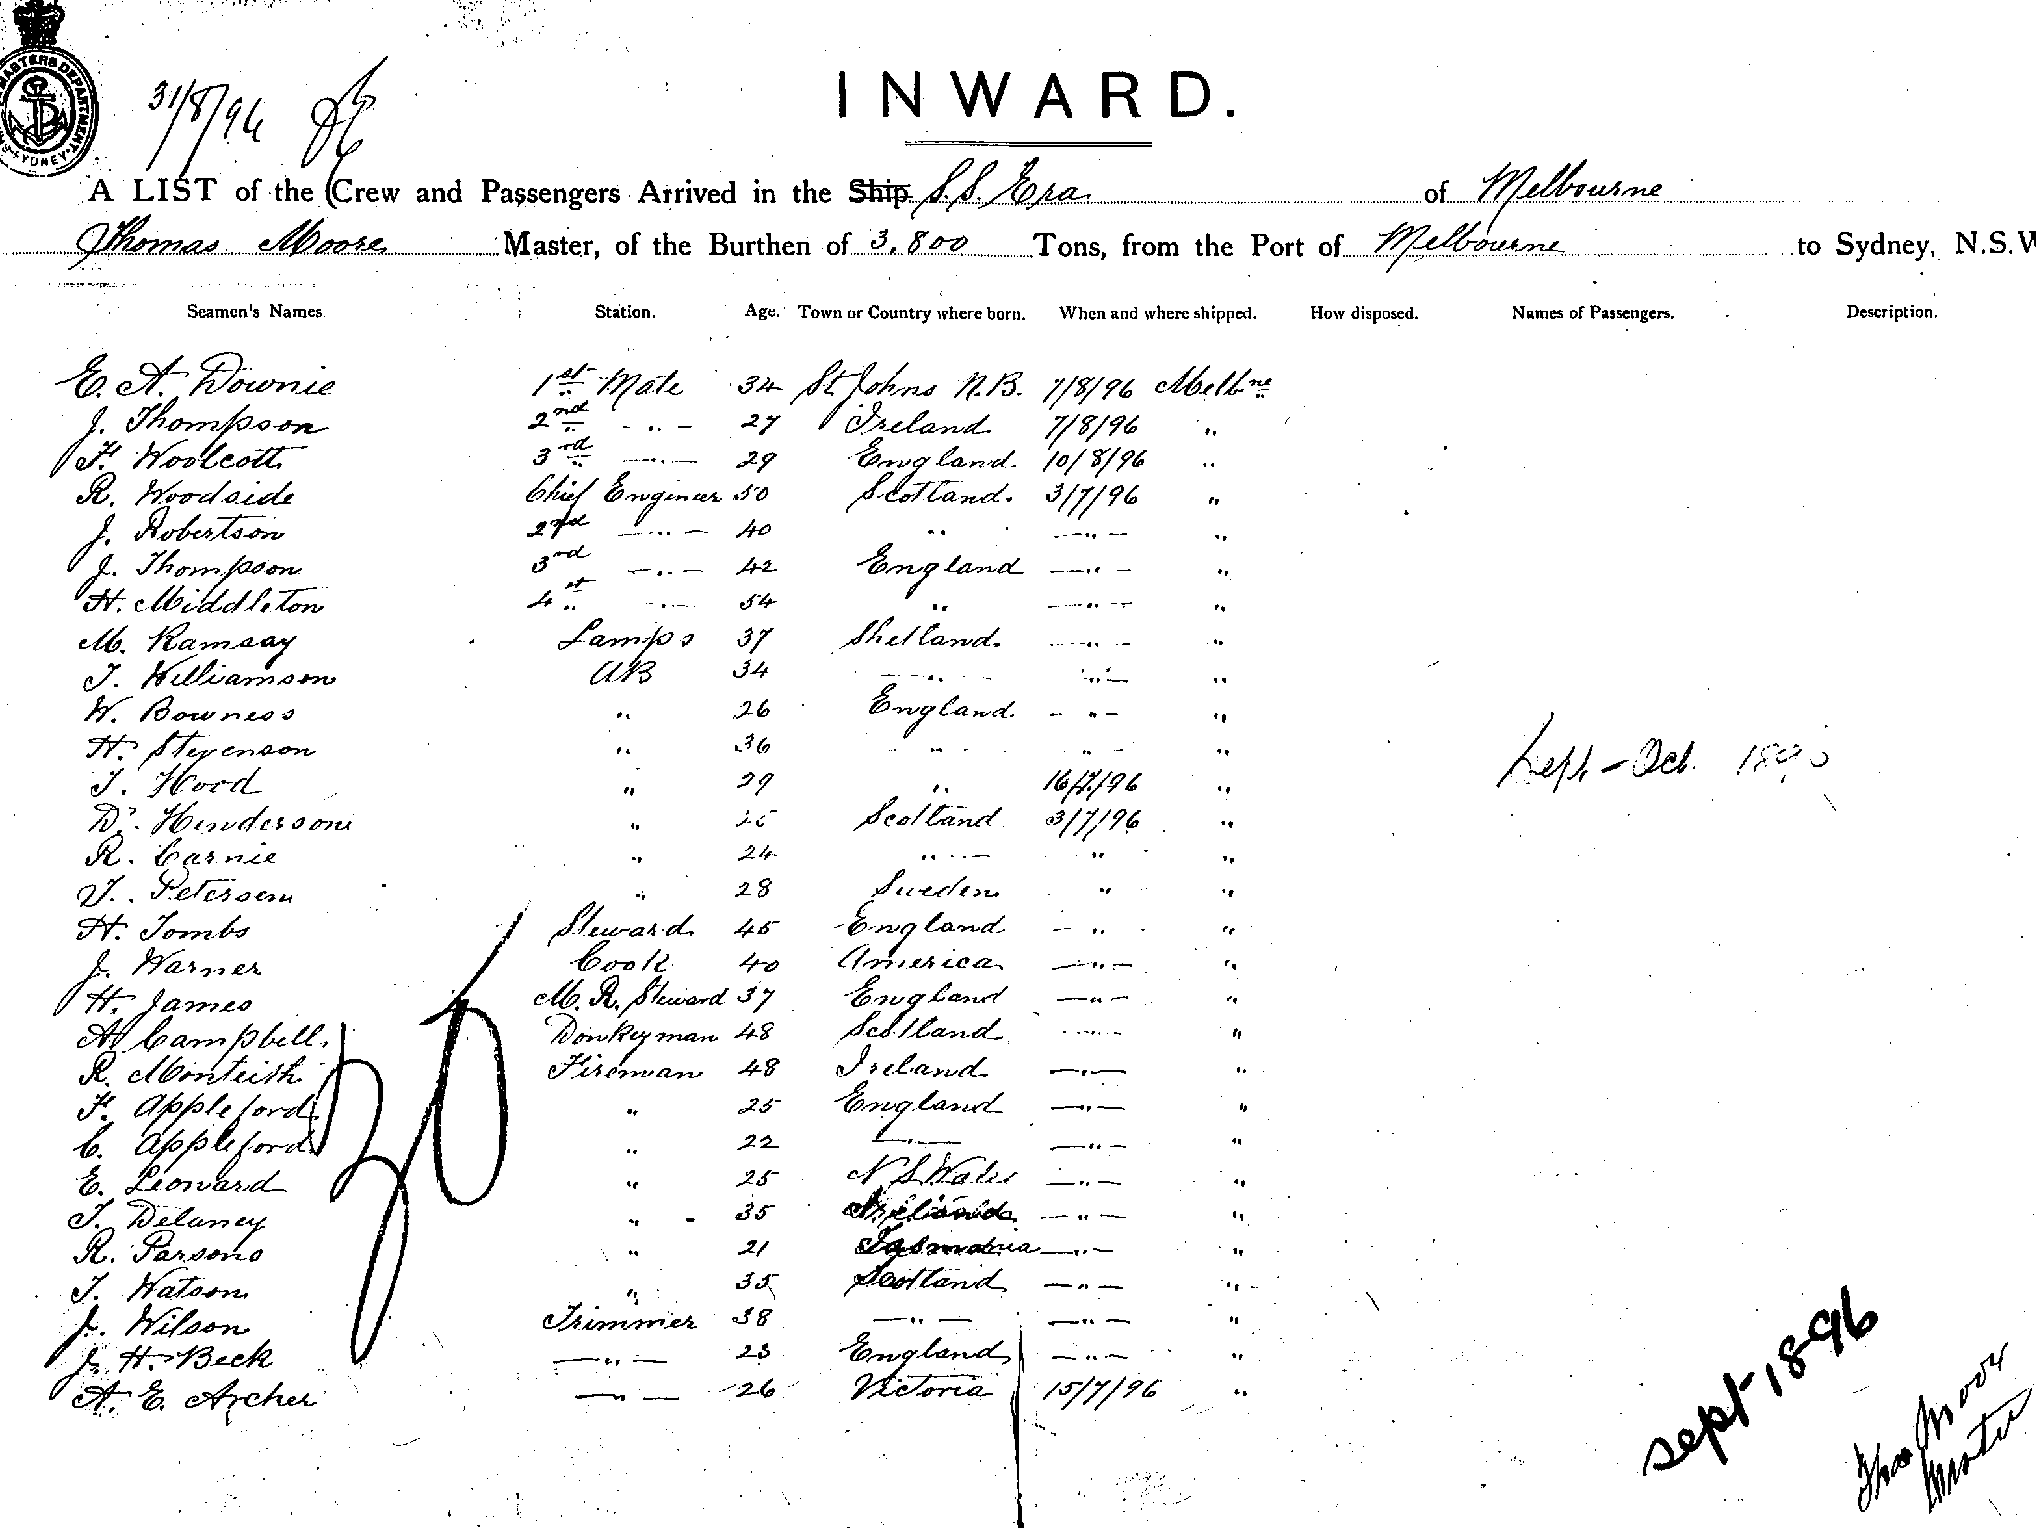 MASTERS DEPARTMENT SYDNEY
31/8/96
INWARD.
A LIST of the Crew and Passengers Arrived in the Ship S.S. Era of Melbourne
Thomas Moore Master, of the Burthen of 3,800 Tons, from the Port of Melbourne to Sydney, N.S.W
Seamen's Names Station. Age. Town or Country where born. When and where shipped. How disposed. Names of Passengers. Description.
E. A. Downie 1st Mate 34 St Johns N.B. 7/8/96 Melbne
J. Thompson 2nd — " — 27 Ireland 7/8/96 "
F. Woolcott 3rd — " — 29 England. 10/8/96 "
R. Woodside Chief Engineer 50 Scotland. 3/7/96 "
J. Robertson 2nd — " — 40 " — " — "
J. Thompson 3rd — " — 42 England — " — "
H. Middleton 4st — " — 54 " — " — "
M. Ramsay Lamps 37 Shetland. — " — "
J. Williamson AB 34 — " — — " — "
W. Bowness " 26 England. — " — "
H. Stevenson " 36 — " — — " — "
J. Hood " 29 " 16/7/96 "
D. Henderson " Scotland 3/7/96 "
R. Carnie " 24 " — " "
J. Petersen " 28 Sweden " "
H. Tombs Steward 45 England — " "
J. Warner Cook 40 America — " — "
H. James M. R. Steward 37 England — " — "
A Campbell. Donkeyman 48 Scotland — " — "
R. Monteith Fireman 48 Ireland — " — "
F. Appleford " 25 England — " — "
C. Appleford " 22 — " — — " — "
E. Leonard " 25 N S Wales — " — "
J. Delaney " 35 Ireland — " — "
R. Parsons " 21 Tasmania — " — "
J. Watson " 35 Scotland — " — "
J. Wilson Trimmer 38 — " — — " — "
J. H. Beck — " — 23 England — " — "
A. E. Archer — " — 26 Victoria 15/7/96 "
30
Sept – Oct. 1896
Sept 1896
Thos Moore
Master